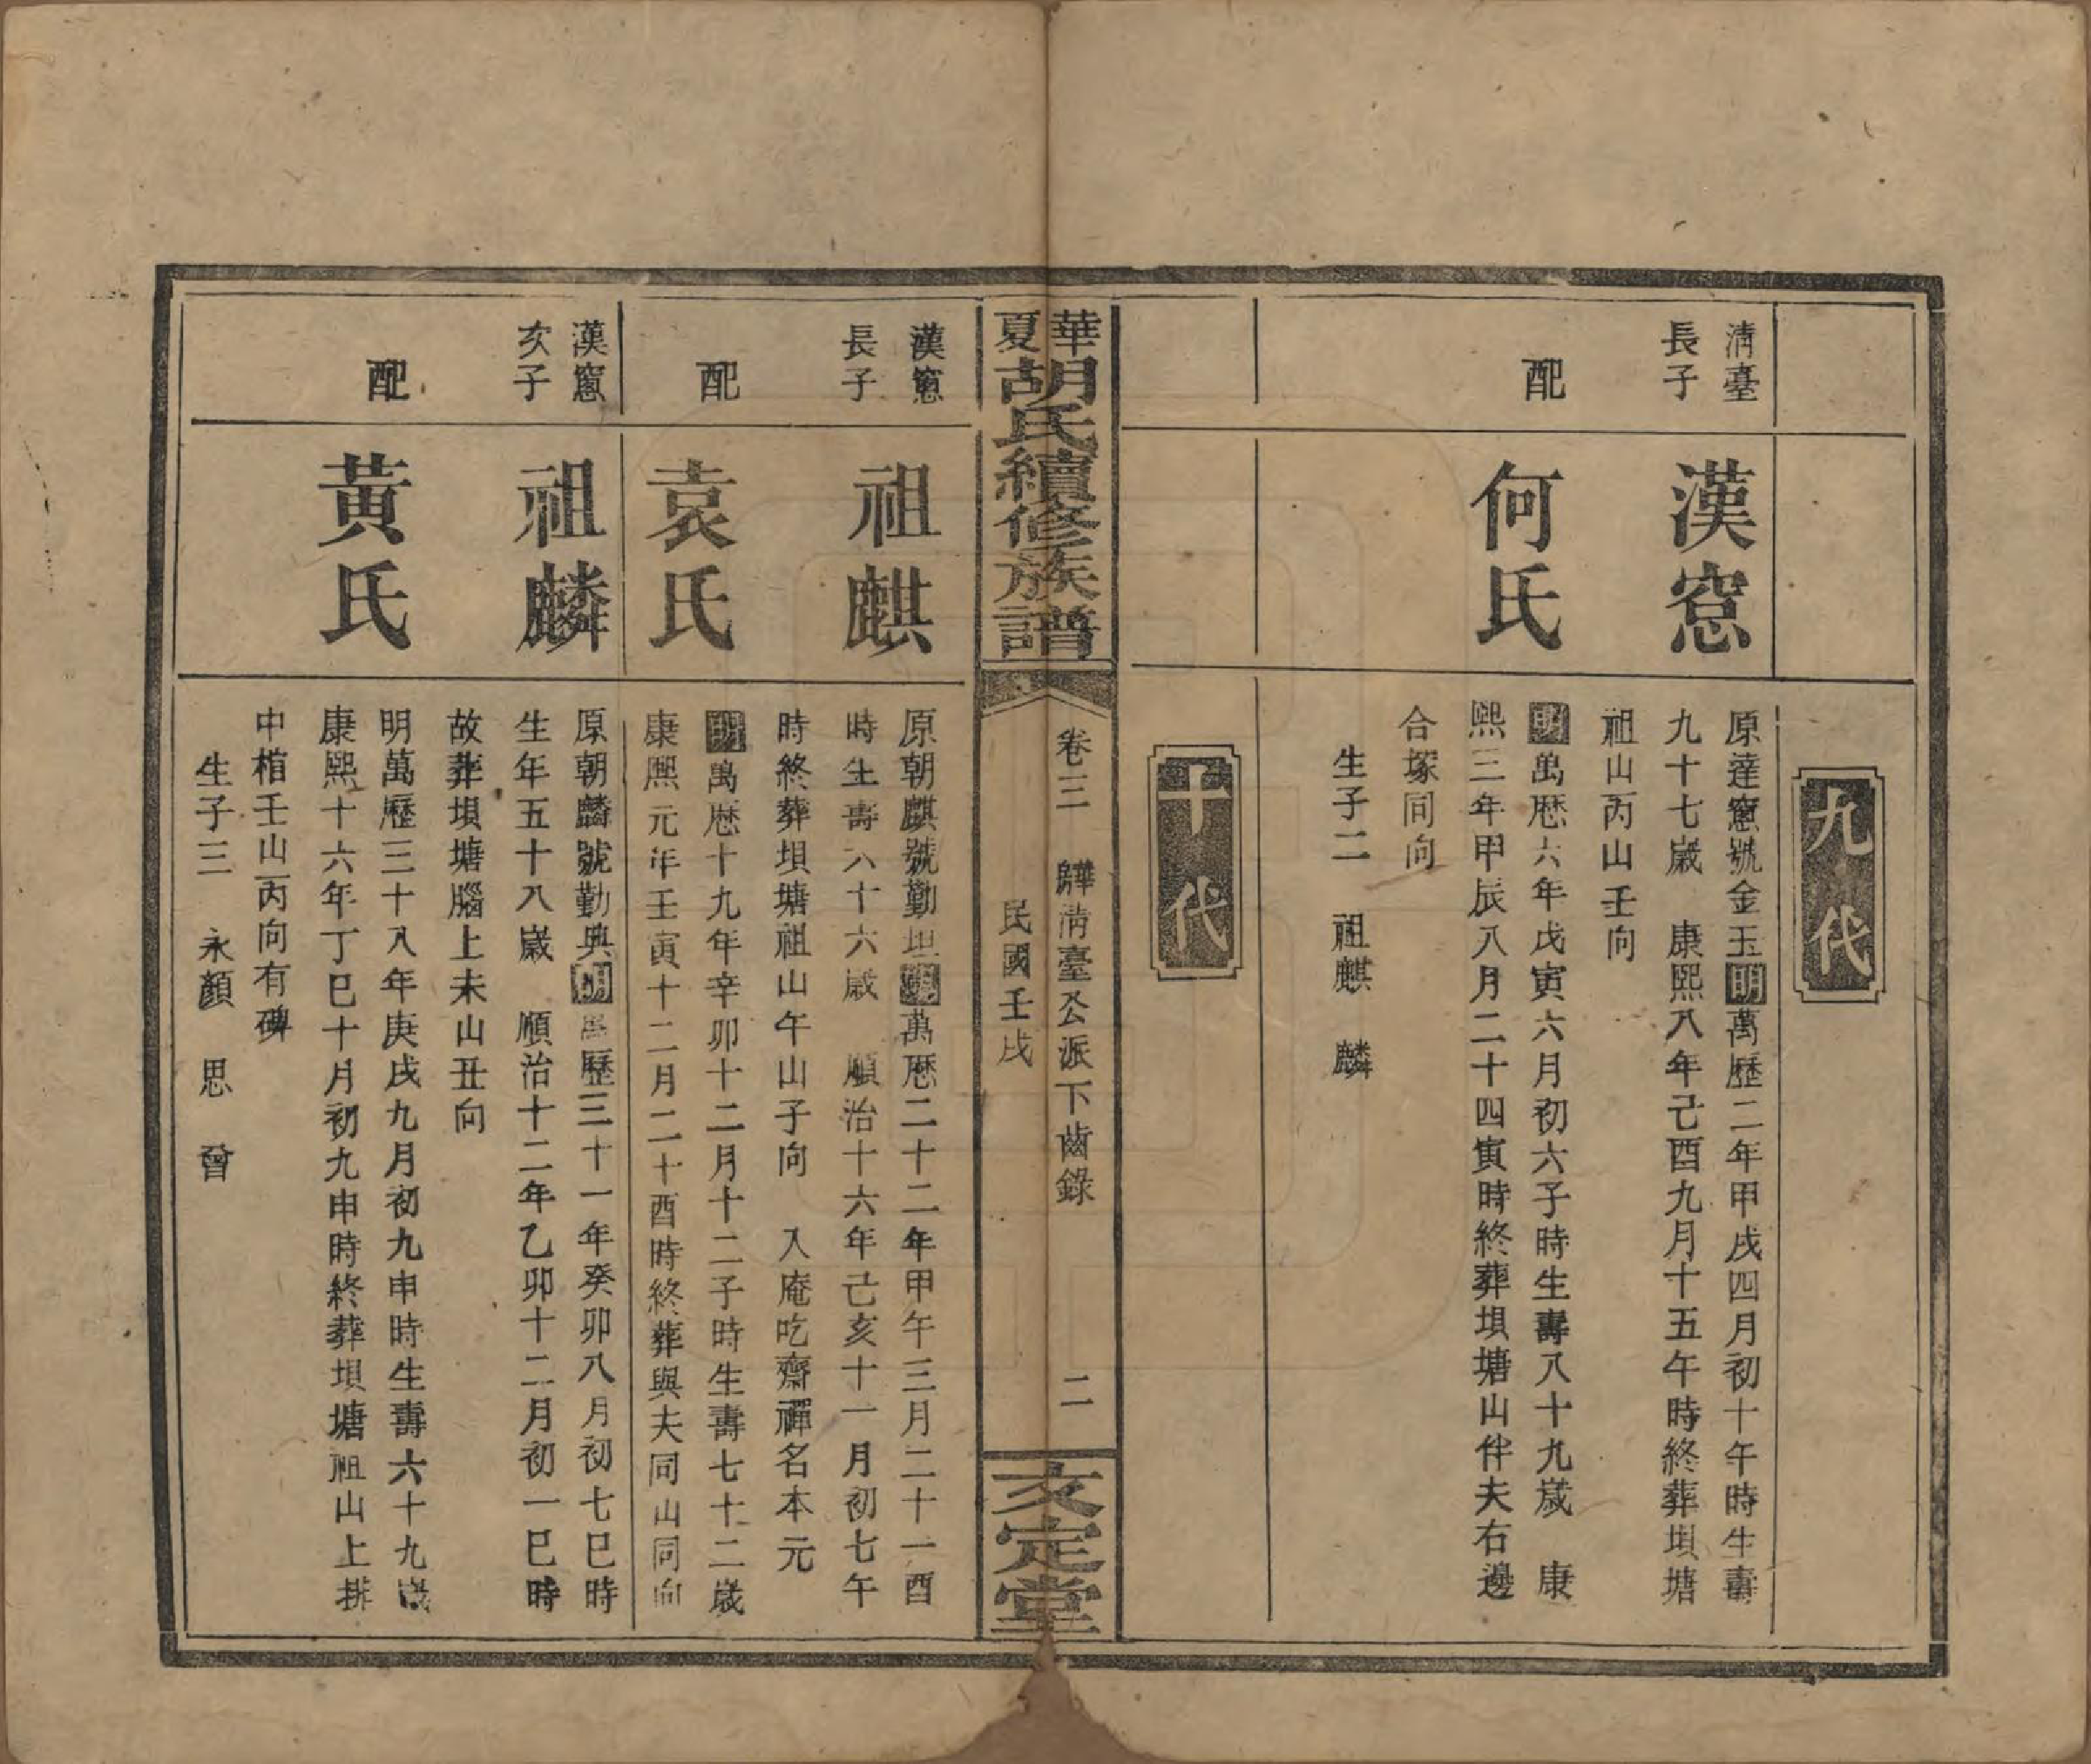 九代
清臺
長子
漢窓
原達窻號金玉明萬歷二年甲戌四月初十午時生壽
九十七歲 康熙八年己酉九月十五午時終葬垻塘
祖山丙山壬向
配
何氏
明萬歷六年戊寅六月初六子時生壽八十九歲 康
熙三年甲辰八月二十四寅時終葬垻塘山伴夫右邊
合塚同向
生子二 祖麒 麟
十代
華夏胡氏續修族譜
卷三 驊清臺公派下齒錄
民國壬戌
二
安定堂
漢窻
長子
祖麒
原朝麒號勤坦明萬歷二十二年甲午三月二十一酉
時生壽六十六歲 順治十六年己亥十一月初七午
時終葬垻塘祖山午山子向 入庵吃齋禪名本元
配
袁氏
明萬歷十九年辛卯十二月十二子時生壽七十二歲
康熙元年壬寅十二月二十酉時終葬與夫同山同向
漢窻
次子
祖麟
原朝麟號勤典明萬歷三十一年癸卯八月初七巳時
生年五十八歲 順治十二年乙卯十二月初一巳時
故葬垻塘腦上未山丑向
配
黃氏
明萬歷三十八年庚戌九月初九申時生壽六十九歲
康熙十六年丁巳十月初九申時終葬垻塘祖山上排
中棺壬山丙向有碑
生子三 永顏 思 曾